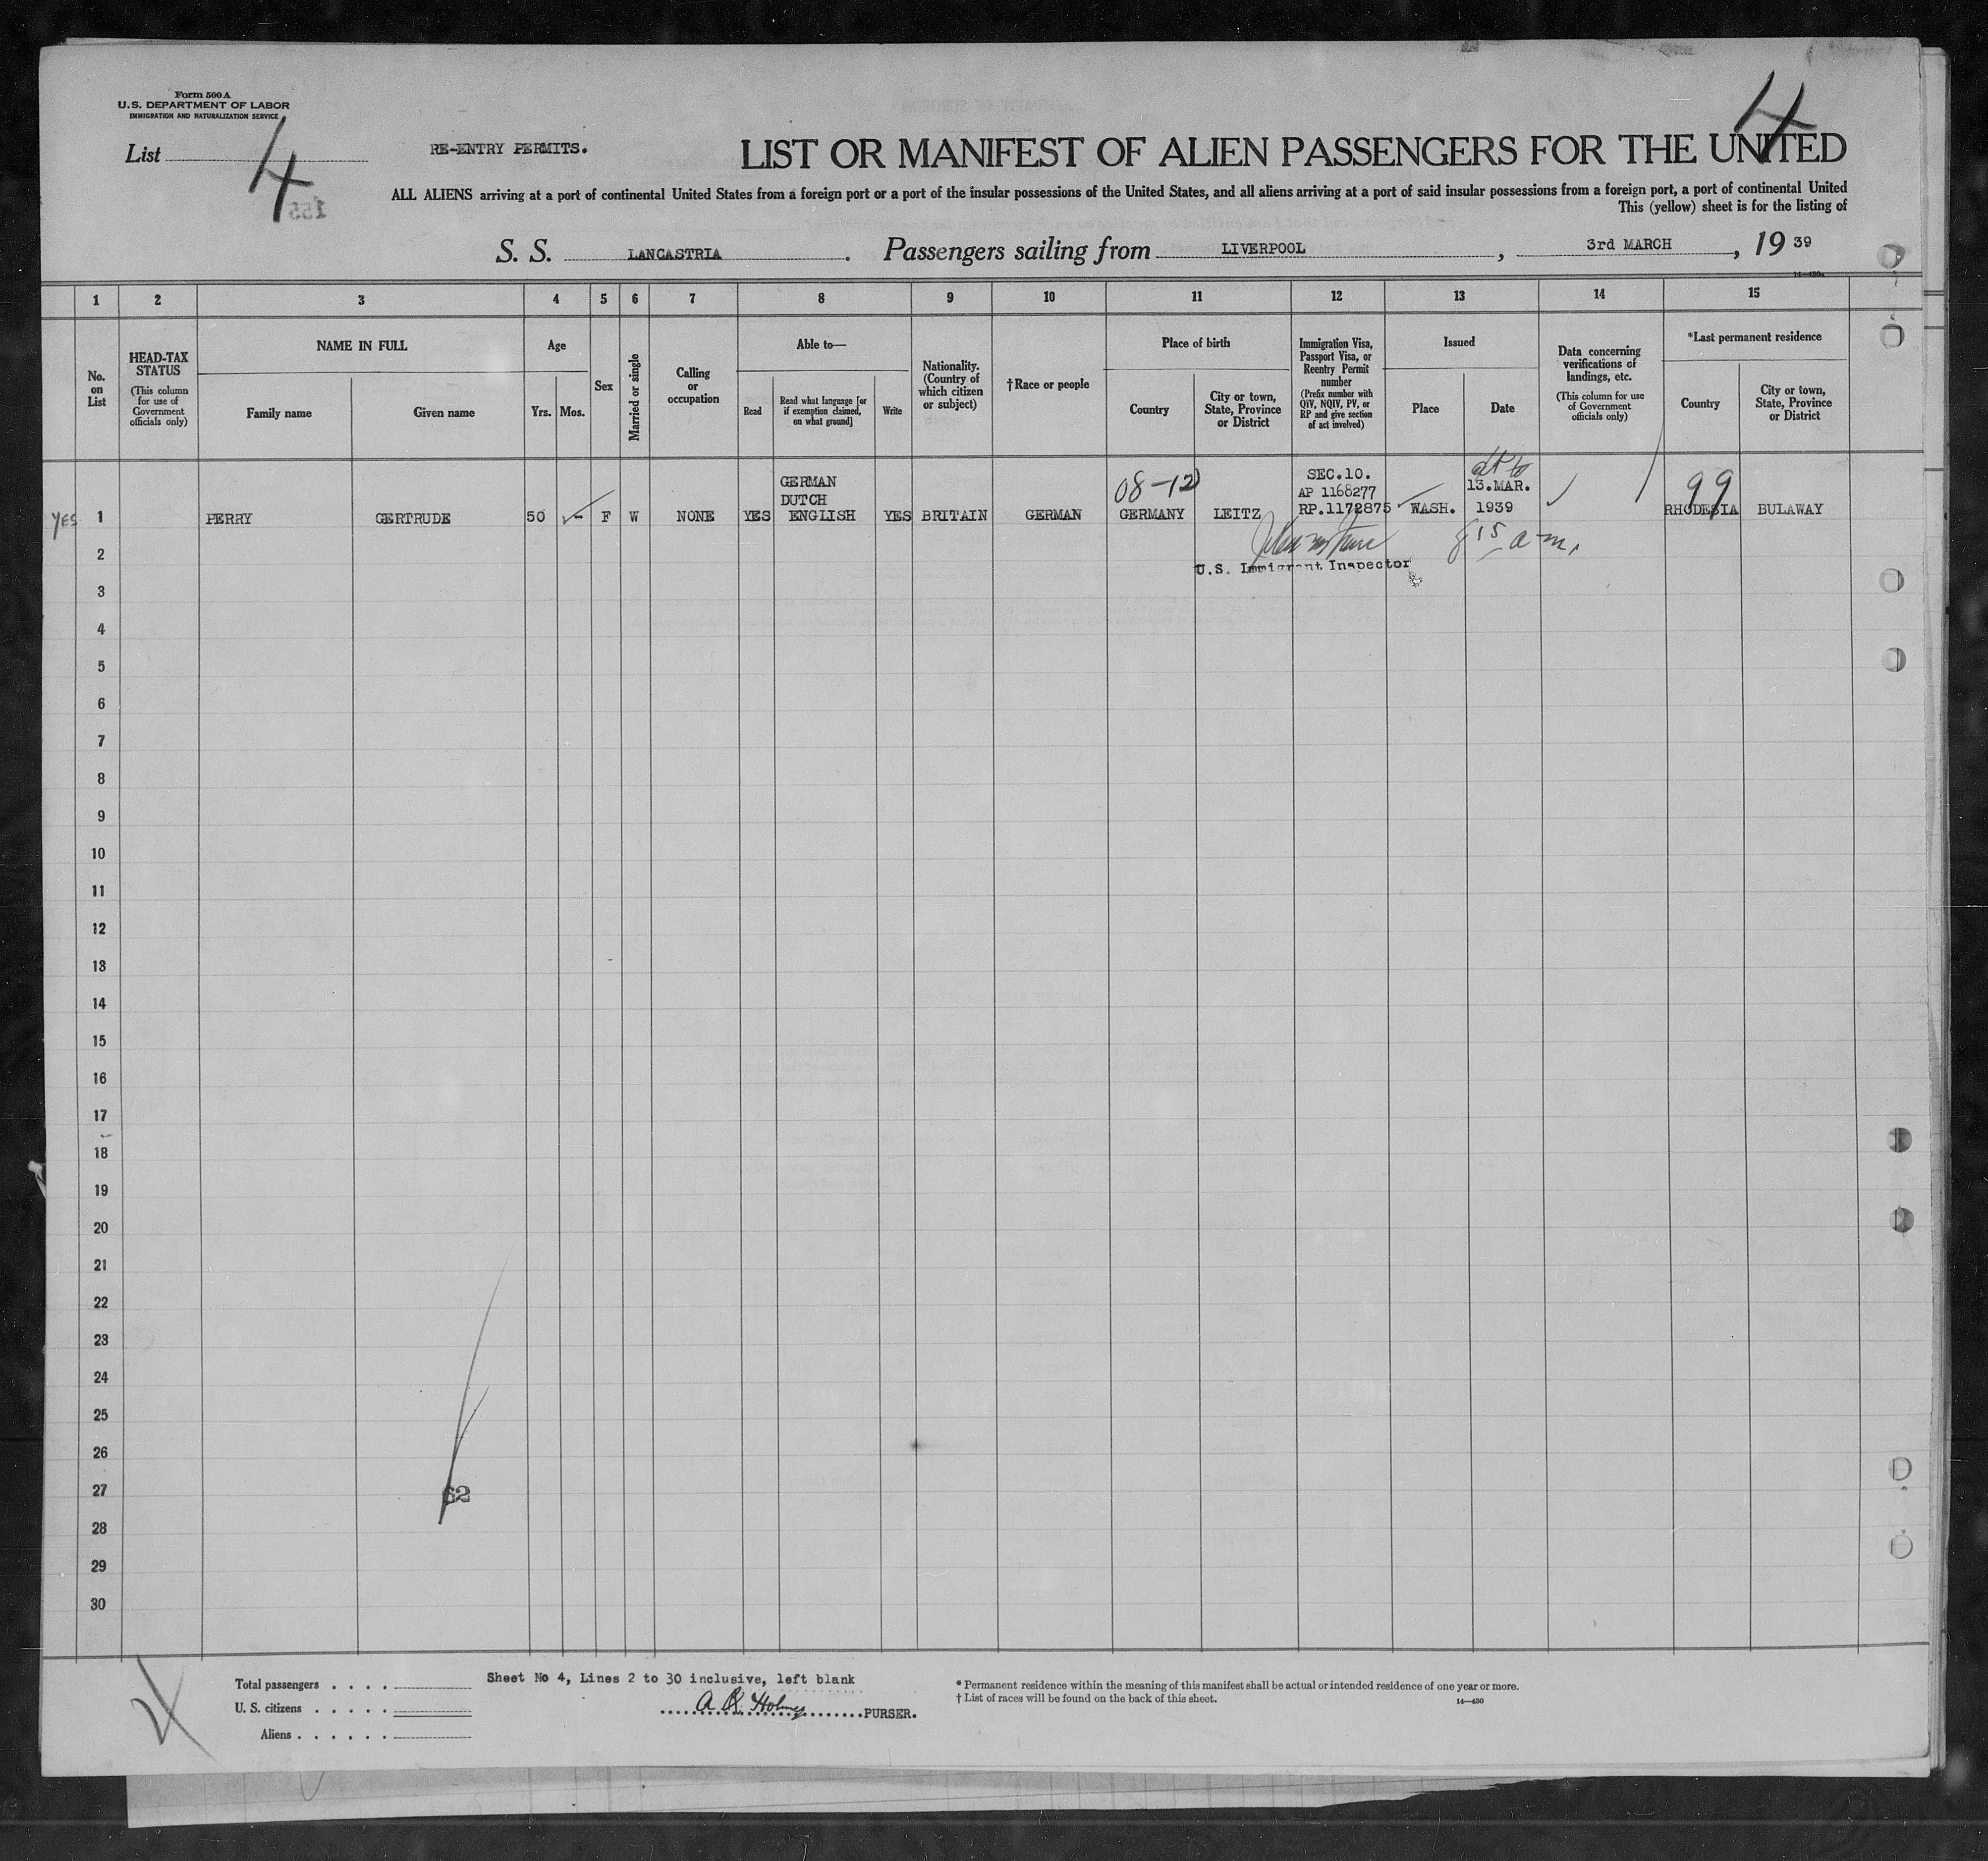 Form 500 A
U.S. DEPARTMENT OF LABOR
IMMIGRATION AND NATURALIZATION SERVICE
List 4
155
RE-ENTRY PERMITS.
4
LIST OR MANIFEST OF ALIEN PASSENGERS FOR THE UNITED
ALL ALIENS arriving at a port of continental United States from a foreign port or a port of the insular possessions of the United States, and all aliens arriving at a port of said insular possessions from a foreign port, a port of continental United
This (yellow) sheet is for the listing of
S. S. LANCASTRIA. Passengers sailing from LIVERPOOL, 3rd MARCH, 19 39
14-430a
1 2 3 4 5 6 7 8 9 10 11 12 13 14 15
No. on List
HEAD-TAX STATUS (This column for use of Government officials only)
NAME IN FULL
Family name
Given name
Age
Yrs.
Mos.
Sex
Married or single
Calling or occupation
Able to—
Read
Read what language [or if exemption claimed, on what ground]
Write
Nationality. (Country of which citizen or subject)
†Race or people
Place of birth
Country
City or town, State, Province or District
Immigration Visa, Passport Visa, or Reentry Permit number (Prefix number with QIV, NQIV, PV, or RP and give section of act involved)
Issued
Place
Date
Data concerning verifications of landings, etc. (This column for use of Government officials only)
*Last permanent residence
Country
City or town, State, Province or District
GERMAN 08-12 SEC.10.
DUTCH AP 1168277 13.MAR. 99
YES 1 PERRY GERTRUDE 50 - F W NONE YES ENGLISH YES BRITAIN GERMAN GERMANY LEITZ RP.1172875 WASH. 1939 RHODESIA BULAWAY
8 15 a-m.
U.S. Immigrant Inspector
2
3
4
5
6
7
8
9
10
11
12
13
14
15
16
17
18
19
20
21
22
23
24
25
26
27
62
28
29
30
4
Total passengers . . . .
U. S. citizens . . . . .
Aliens . . . . . .
Sheet No 4, Lines 2 to 30 inclusive, left blank
PURSER.
* Permanent residence within the meaning of this manifest shall be actual or intended residence of one year or more.
† List of races will be found on the back of this sheet.
14—430